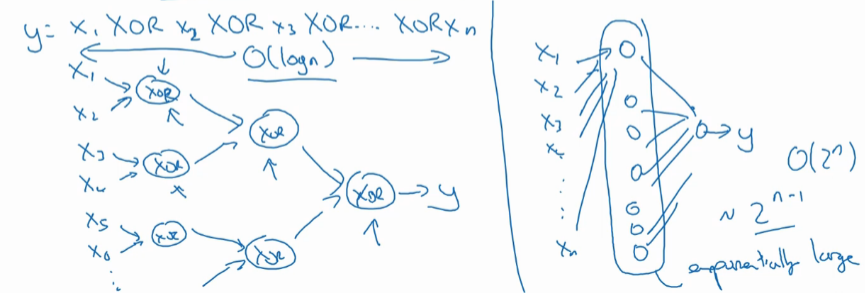 y = x₁ XOR x₂ XOR x₃ XOR.... XOR xₙ
O(logn)
x₁
x₂
XOR
x₃
x₄
XOR
XOR
x₅
x₆
XOR
XOR
XOR
y
x₁
x₂
x₃
x₄
xₙ
y
O(2ⁿ)
~ 2ⁿ⁻¹
exponentially large